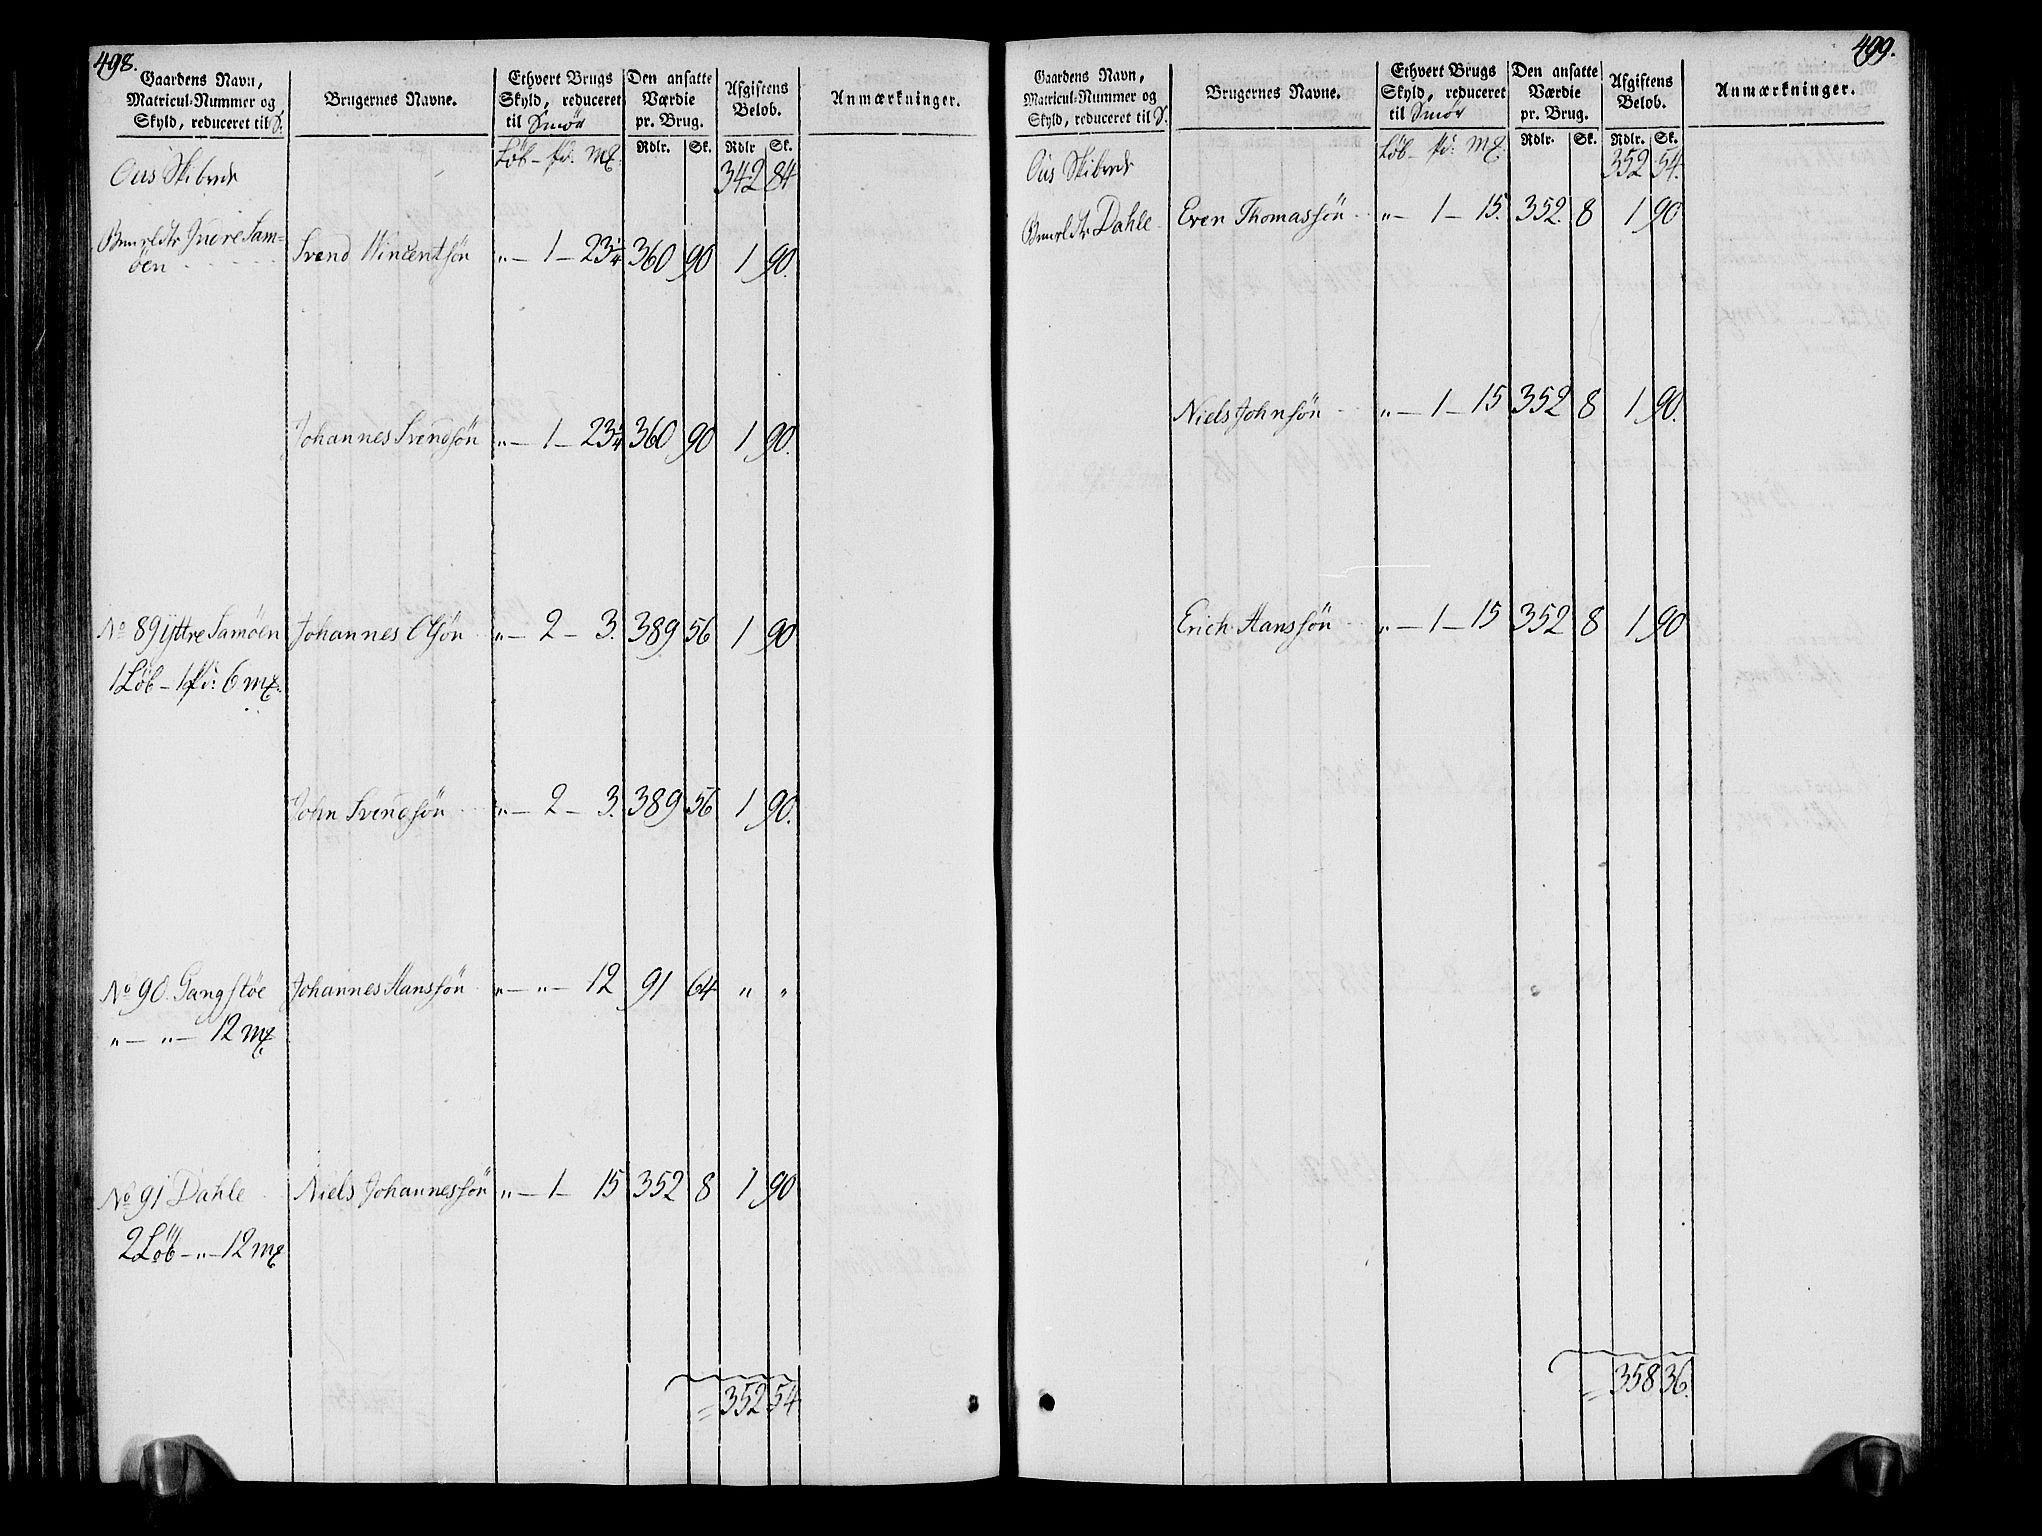 498.
Gaardens Navn,
Matricul-Nummer og
Skyld, reduceret til S.
Brugernes Navne.
Ethvert Brugs
Skyld, reduceret
til Smør
Den ansatte
Værdie
pr. Brug.
Afgiftens
Belob.
Anmærkninger.
Løb - pd: mk
Rdlr. Sk. Rdlr Sk.
Ous Skibrede 342 84
Indre Sam=
øen Svend Wincentsøn „ - 1 - 23 1/4 360 90 1 90.
Johannes Svendsøn „ - 1 - 23 1/4 360 90 1 90.
No 89 Yttre Samøen Johannes Olsøn „ - 2 - 3. 389 56 1 90
1 Løb - 1 pd: 6 mk.
John Svendsøn „ - 2 - 3. 389 56 1 90.
No 90. Gangstøe Johannes Hanssøn „ - „ - 12 91 64 „ „
„ - „ - 12 mk
No 91 Dahle Niels Johannessøn „ - 1 - 15 352 8 1 90
2 Løb - „ - 12 mk
= 352 54
499.
Gaardens Navn,
Matricul-Nummer og
Skyld, reduceret til S.
Brugernes Navne.
Ethvert Brugs
Skyld, reduceret
til Smør
Den ansatte
Værdie
pr. Brug.
Afgiftens
Belob.
Anmærkninger.
Løb - pd: mk
Rdlr. Sk. Rdlr. Sk.
Ous Skibrede 352 54.
Dahle Even Thomassøn „ - 1 - 15. 352 8 1 90
Niels Johnsøn „ - 1 - 15 352 8 1 90.
Erich Hanssøn „ - 1 - 15 352 8 1 90
= 358 36.